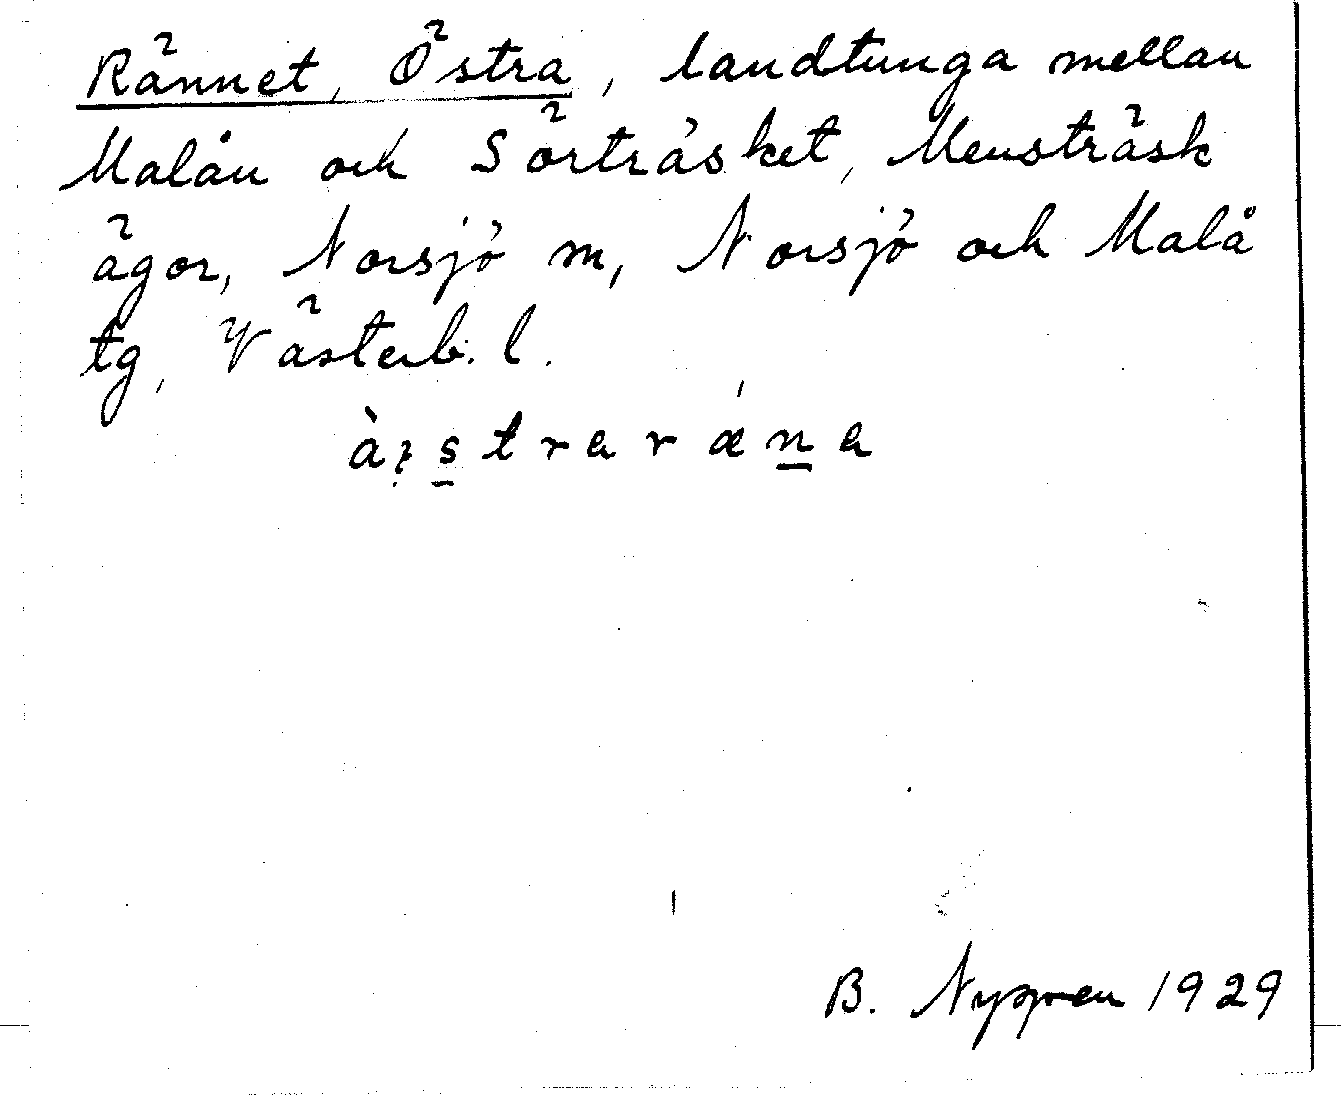 Rännet, Östra, landtunga mellan
Malån och Sörträsket, Mensträsk
ägor, Norsjö m, Norsjö och Malå
tg, Västerb. l.
B. Nygren 1929